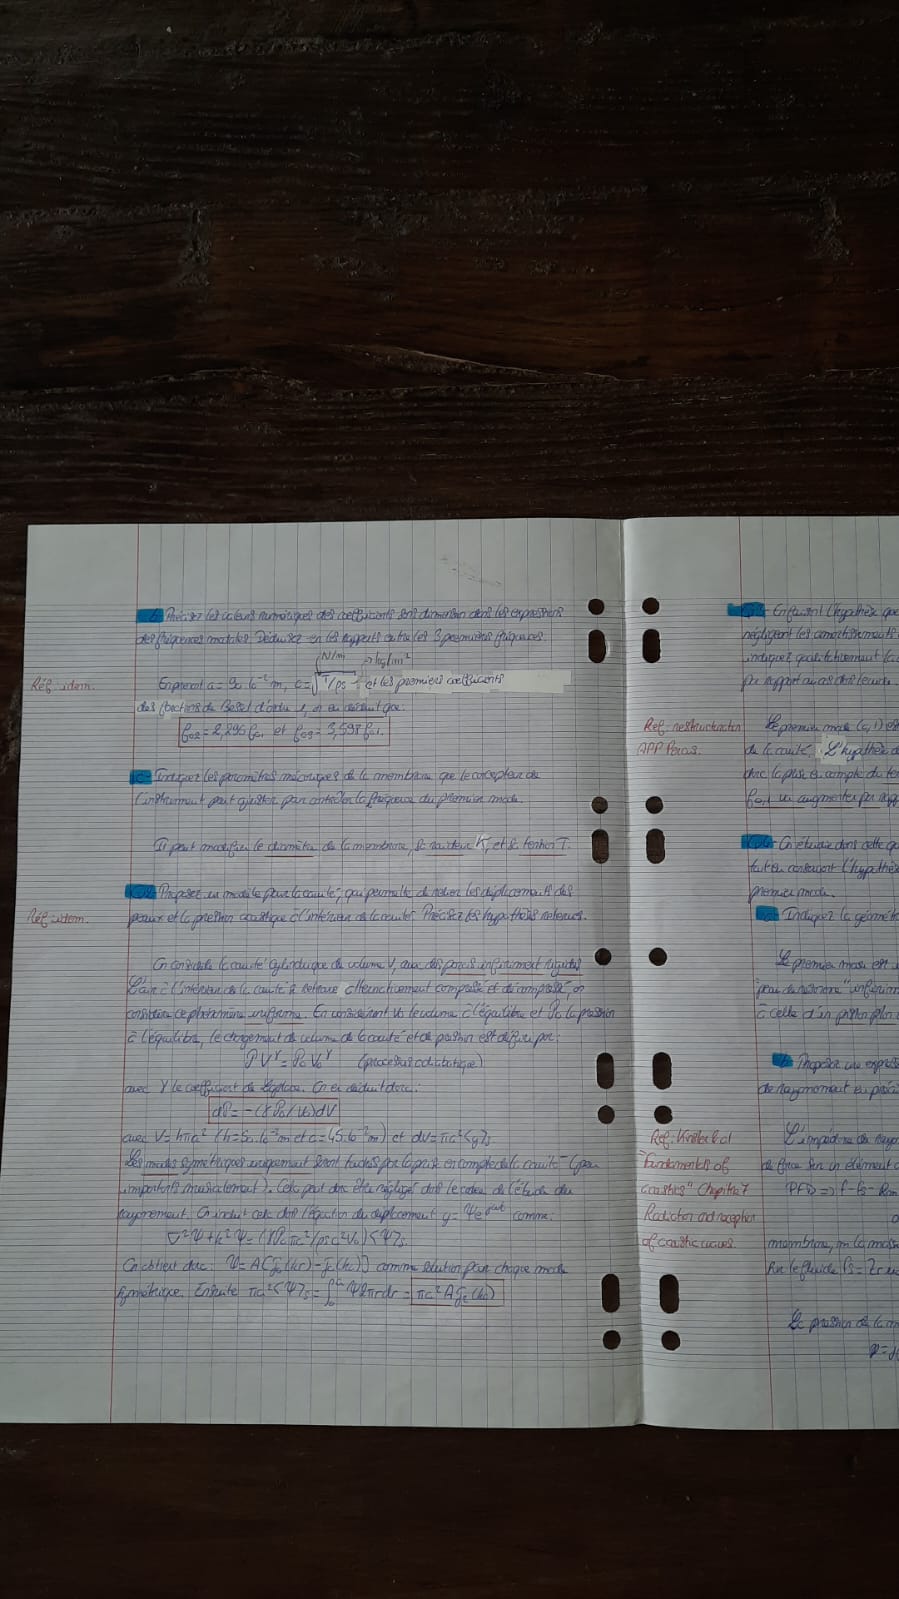 b- Préciser les valeurs numériques des coefficients sans dimension dans les expressions
des fréquences modales. Déduisez-en les rapports entre les 3 premières fréquences.
N/m
→ kg/m²
Réf: idem.
En prenant a = 90.10⁻² m, c = √T/ρs et les premiers coefficients
des fonctions de Bessel d'ordre 1, on en déduit que:
f02 = 2,296 f01 et f03 = 3,598 f01.
c- Indiquez les paramètres mécaniques de la membrane que le concepteur de
l'instrument peut ajuster pour contrôler la fréquence du premier mode.
Il peut modifier le diamètre de la membrane, sa raideur K, et sa tension T.
Proposer un modèle pour la cavité, qui permette de relier les déplacements des
Réf: idem.
peaux et la pression acoustique à l'intérieur de la cavité. Précisez les hypothèses retenues.
On considère la cavité cylindrique de volume V, avec des parois infiniment rigides
L'air à l'intérieur de la cavité se retrouve alternativement compressé et décompressé, on
considère ce phénomène uniforme. En considérant V₀ le volume à l'équilibre et P₀ la pression
à l'équilibre, le changement de volume de la cavité et de pression est défini par:
PV^γ = P₀V₀^γ (processus adiabatique)
avec γ le coefficient de Laplace. On en déduit donc:
dP = -(γP₀/V₀)dV
avec V = hπa² (h = 50.10⁻² m et a = 45.10⁻² m) et dV = πa²<y>s
Les modes symétriques uniquement seront touchés par la prise en compte de la cavité (peu
importants musicalement). Cela peut donc être négligé dans le cadre de l'étude du
rayonnement. On induit cela dans l'équation du déplacement y = Ψe^jωt comme:
∇²Ψ + k²Ψ = (γP₀πa²/ρsc²V₀)<Ψ>s
On obtient donc: Ψ = A[J₀(kr) - J₀(ka)] comme solution pour chaque mode
symétrique. Ensuite πa²<Ψ>s = ∫₀ᵃ Ψ2πrdr = πa²AJ₂(ka)
En faisant l'hypothèse que
négligeant les amortissements
indiquez qualitativement la
par rapport au cas
Ref: restructuration
APP Peros.
Le premier mode (0,1) est
de la cavité. L'hypothèse
donc la prise en compte du
f01 va augmenter par rapp
On étudie dans cette qu
tout en conservant l'hypothèse
premier mode.
a- Indiquez la géométri
Le premier mode est
"peau de résonance"
à celle d'un piston plan
b- Proposer une expres
de rayonnement
Ref: Kinsler & al
"Fundamentals of
acoustics" Chapitre 7
Radiation and reception
of acoustic waves.
L'impédance de rayo
de force sur un élément
PFD => f - fs - Rm
membrane, m la masse
sur le fluide fs = Zr u
La pression de la m
p = j